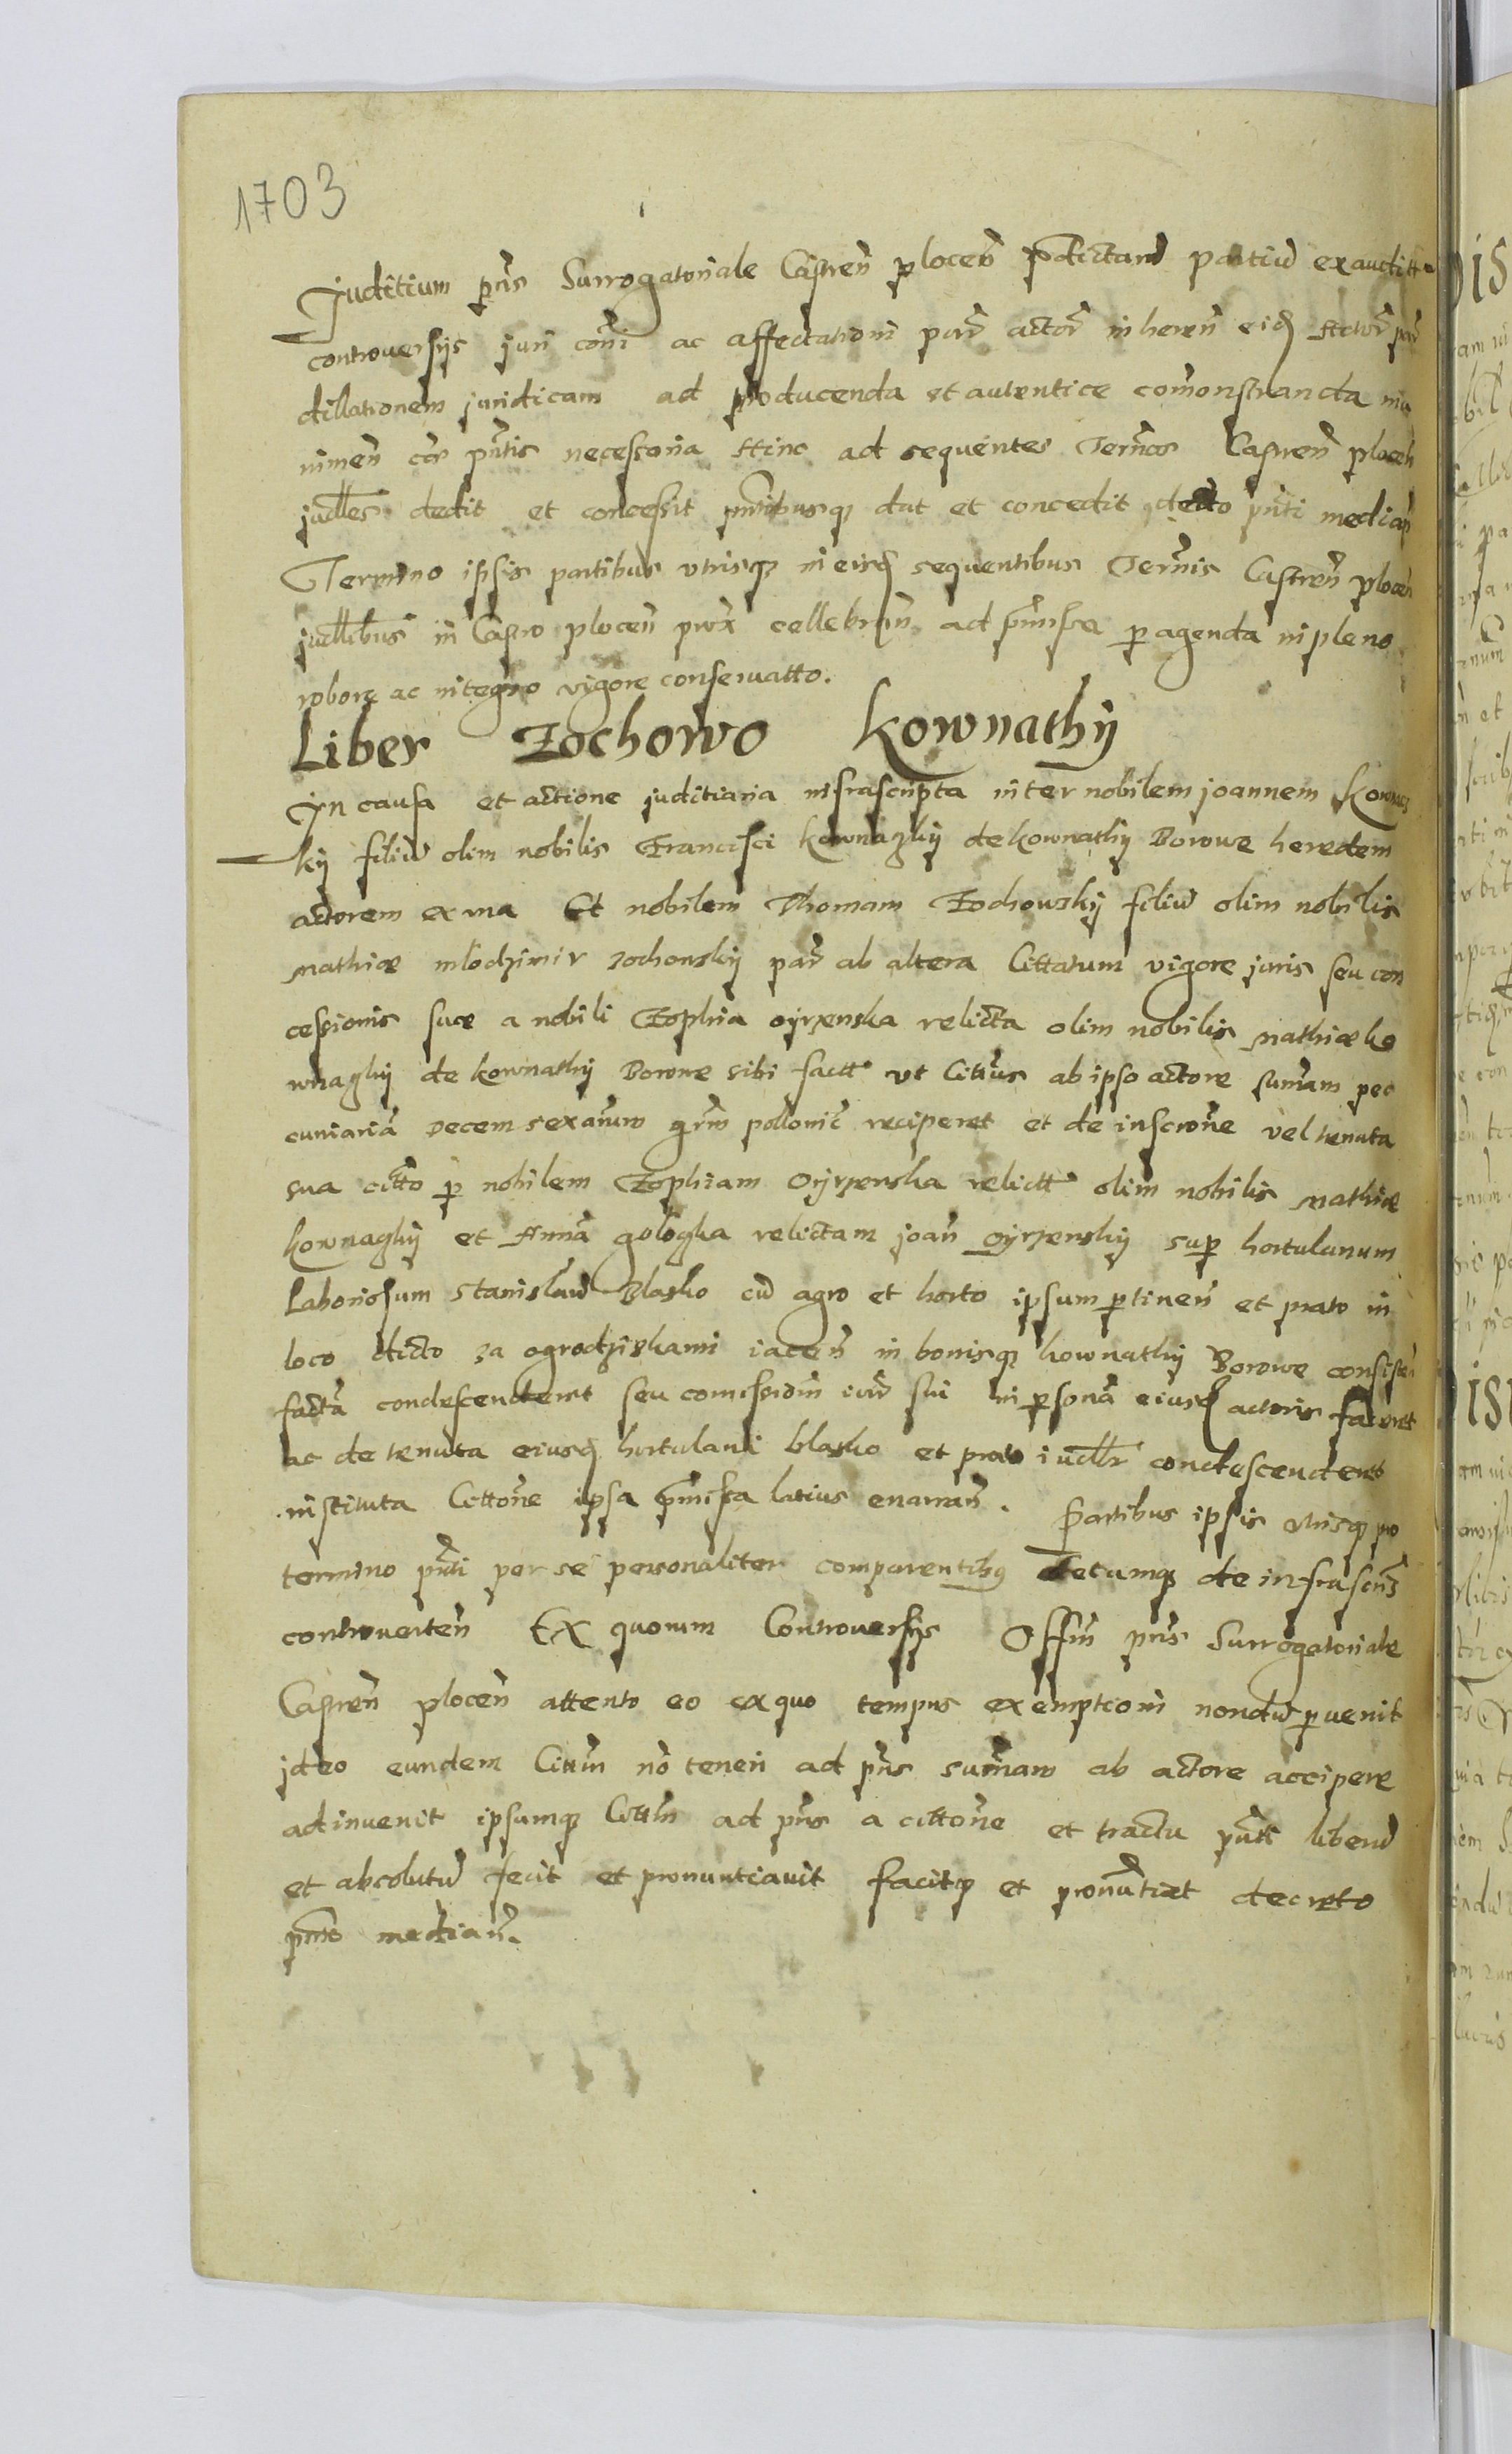 1703
Juditium pn̄s Surrogatoriale Castren̄ plocen̄ p̄dictarū partiū exauditt
controuersijs juri cōni ac affectationi par̄ actor̄ inheren̄ eid
dillationem juridicam ad producenda et autentice com̄onstranda mu
nimen̄ cās pn̄tis necessaria Hinc ad sequentes Term̄os Castren̄ plocen̄
judl̄es dedit et concessit pn̄tibusq dat et concedit decto pn̄ti median̄
Termino ipsis partibus vtrisq in eisd sequentibus Term̄is Castren̄ plocen̄
judl̄ibus in Castro plocen̄ prox̄ cellebran̄ ad p̄missa peragenda in pleno
robore ac integro vigore conseruatto.
Liber Zochowo Kownathÿ
Jn causa et actione juditiaria infrascripta inter nobilem joannem Kownaz
kÿ filiū olim nobilis Francisci Kownazkÿ de Kownathÿ Borowe heredem
actorem ex vna Et nobilem Thomam Zochowskÿ filiū olim nobilis
Mathiæ mlodzinir zochowskÿ par̄ ab altera Cittatum vigore juris seu con
cessionis suæ a nobili Zophia oÿrzenska relicta olim nobilis Mathiæ ko
wnaczkÿ de kownathÿ Borowe sibi factt vt Citt̄us ab ipso actore sum̄am pec
cuniariā Decem sexarum gr̄m pollonic̄ reciperet et de inscrōne vel tenuta
sua citto p nobilem Zophiam Oÿrzenska relictt olim nobilis Mathiæ
Kownaczkÿ et Annā relictam joan̄ Oÿrzenskÿ sup hortulanum
Laboriosum Stanislaū Blasko cū agro et horto ipsum ptinen̄ et prato in
loco dicto za ogrodziskami iacen̄ in bonisq kownathÿ Borowe consisten̄
factā condescenderet seu com̄issionm̄ iuriū sui in psonā eiusd actoris faceret
ac de tenuta eiusd hortulani blasko et prato iudl̄r condescenderet
instituta Cittōne ipsa p̄missa latius enarran̄. Partibus ipsis vtrisq pro
termino pn̄ti per se personaliter comparentibq Necumq de infrascris
controuerten̄ Ex quorum Controuersijs Offm̄ pn̄s Surrogatoriale
Castren̄ plocen̄ attento eo ex quo tempus exemptioni nondū puenit
jdeo eundem Citt̄m nō teneri ad pn̄s sum̄am ab actore accipere
adinuenit ipsumq Citt̄m ad pn̄s a cittōne et tractu pn̄tt liberū
et absolutū fecit et pronuntiauit facitq et pronūtiat decreto
pn̄to median̄.